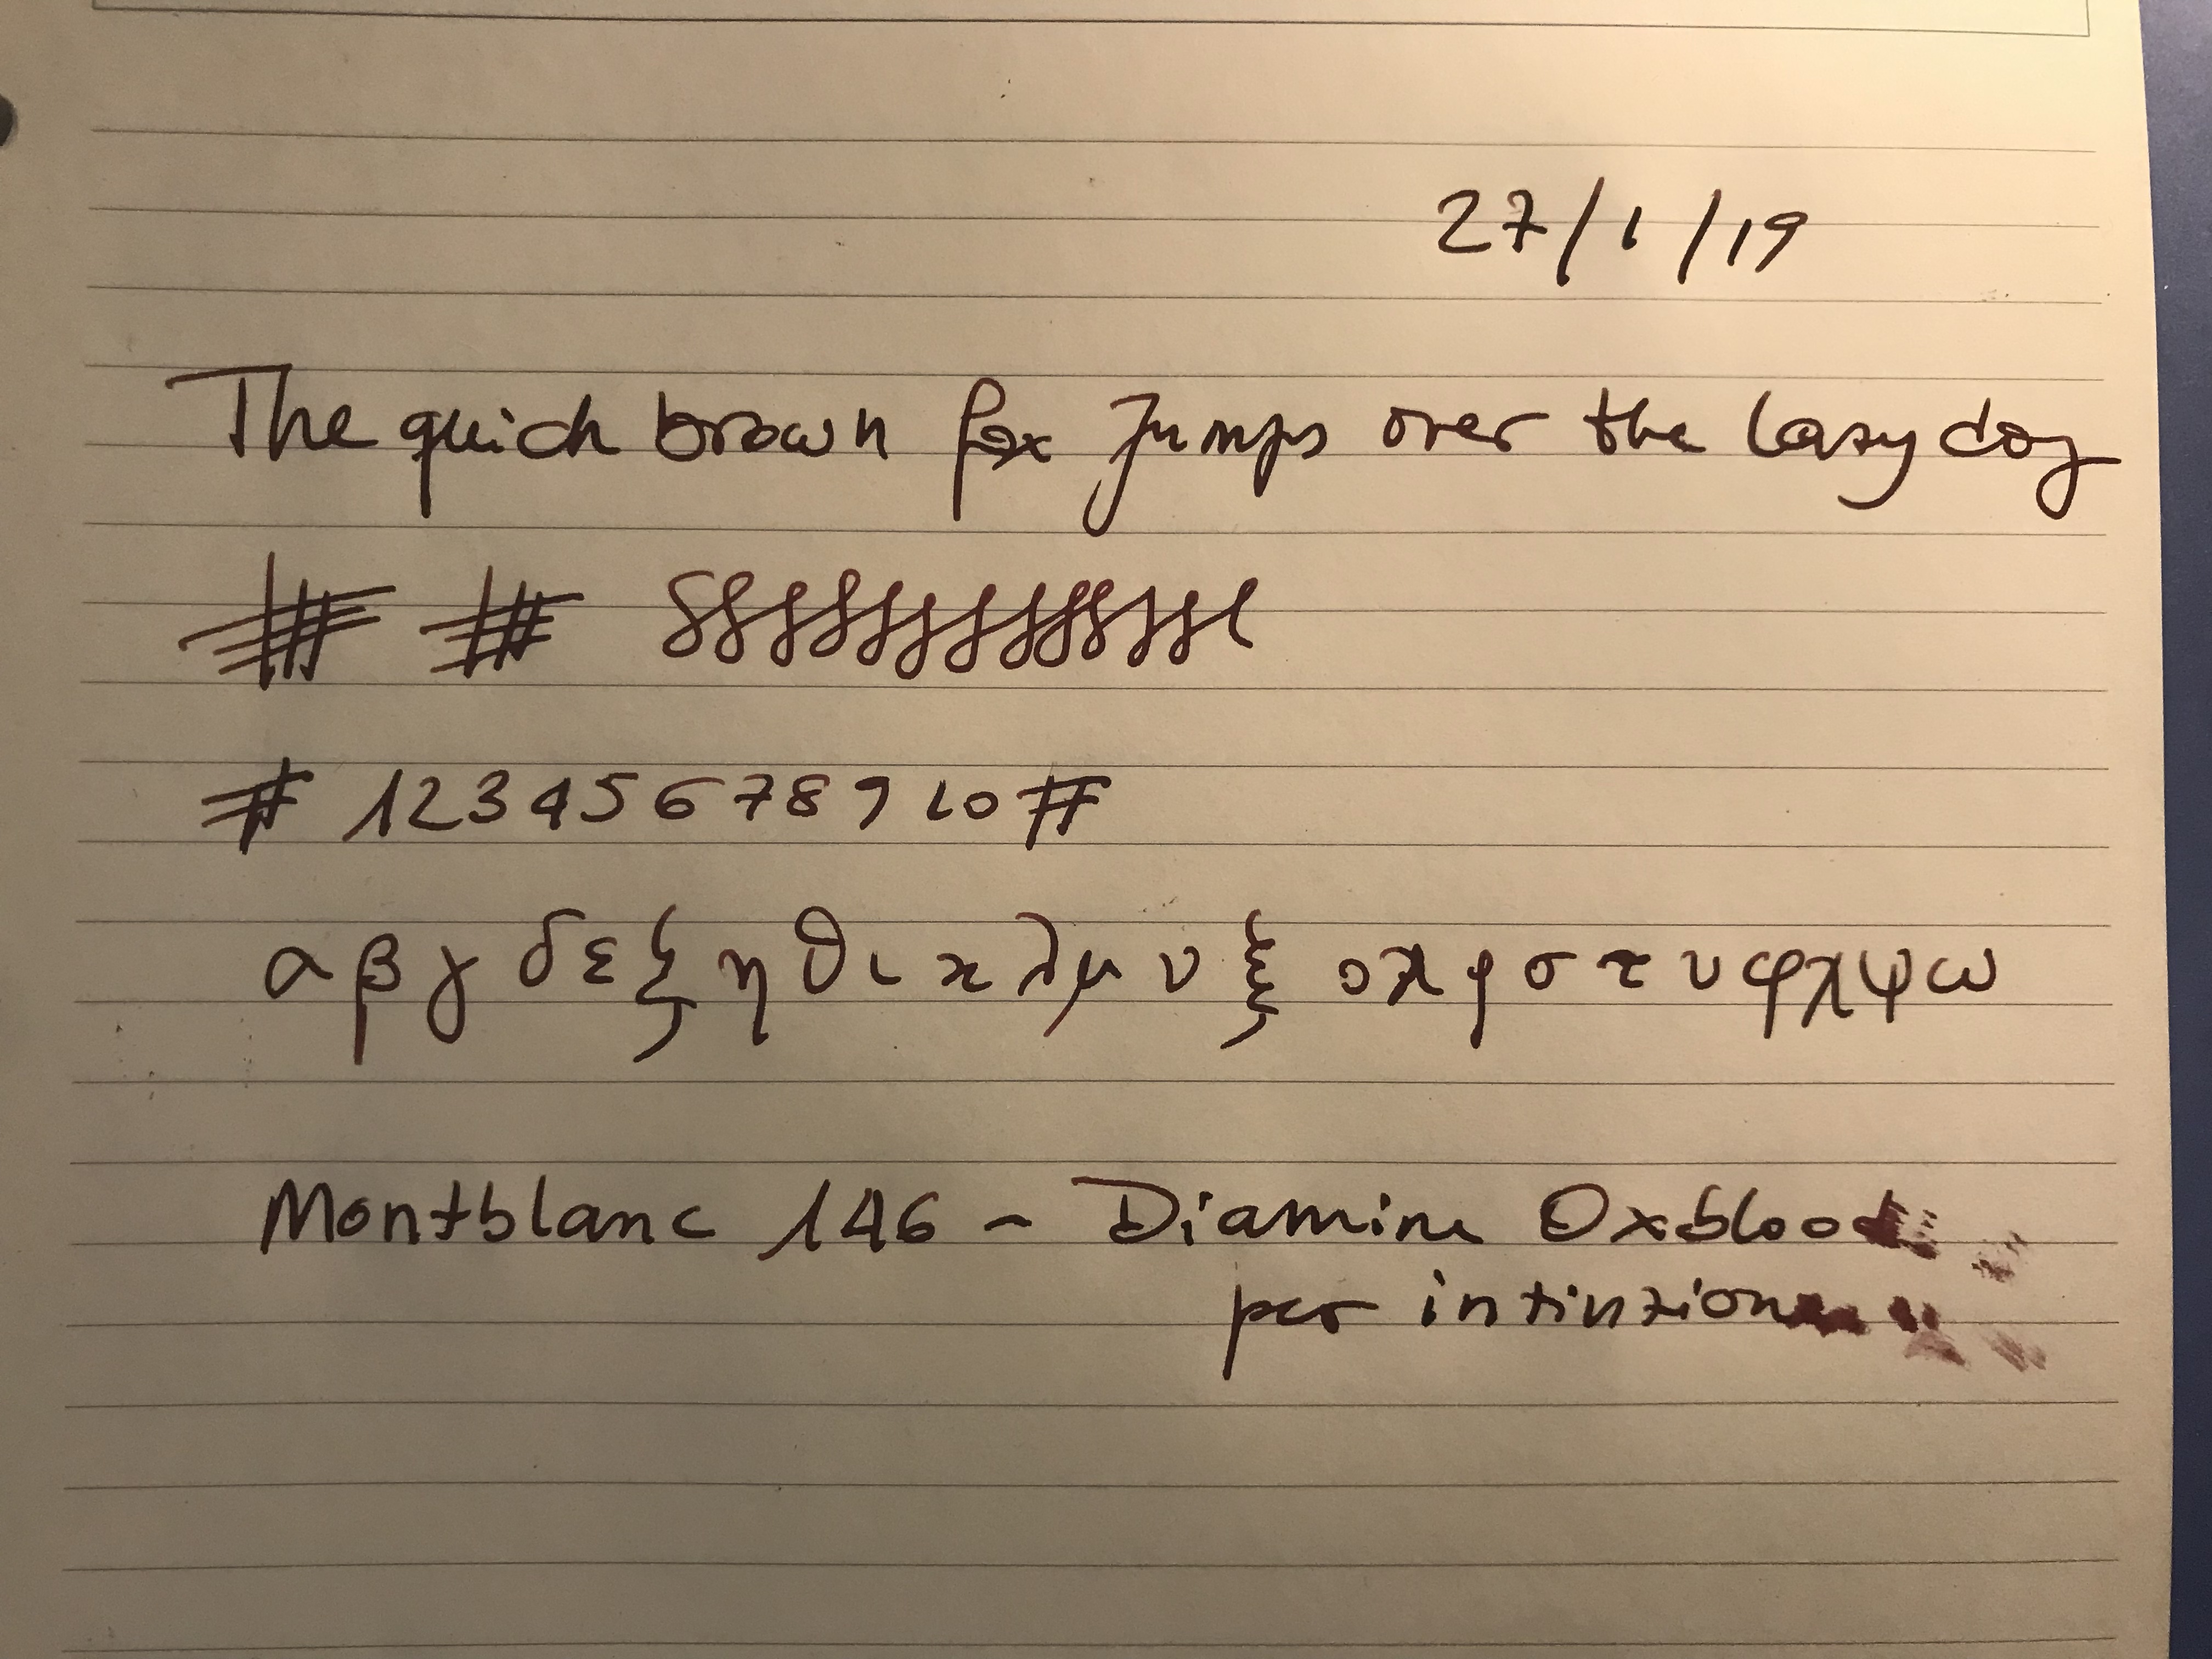 27/1/19
The quick brown fox jumps over the lazy dog
# 1 2 3 4 5 6 7 8 9 10 #
α β γ δ ε ζ η θ ι κ λ μ ν ξ ο π ρ σ τ υ φ χ ψ ω
Montblanc 146 - Diamine Oxblood
per intinzione